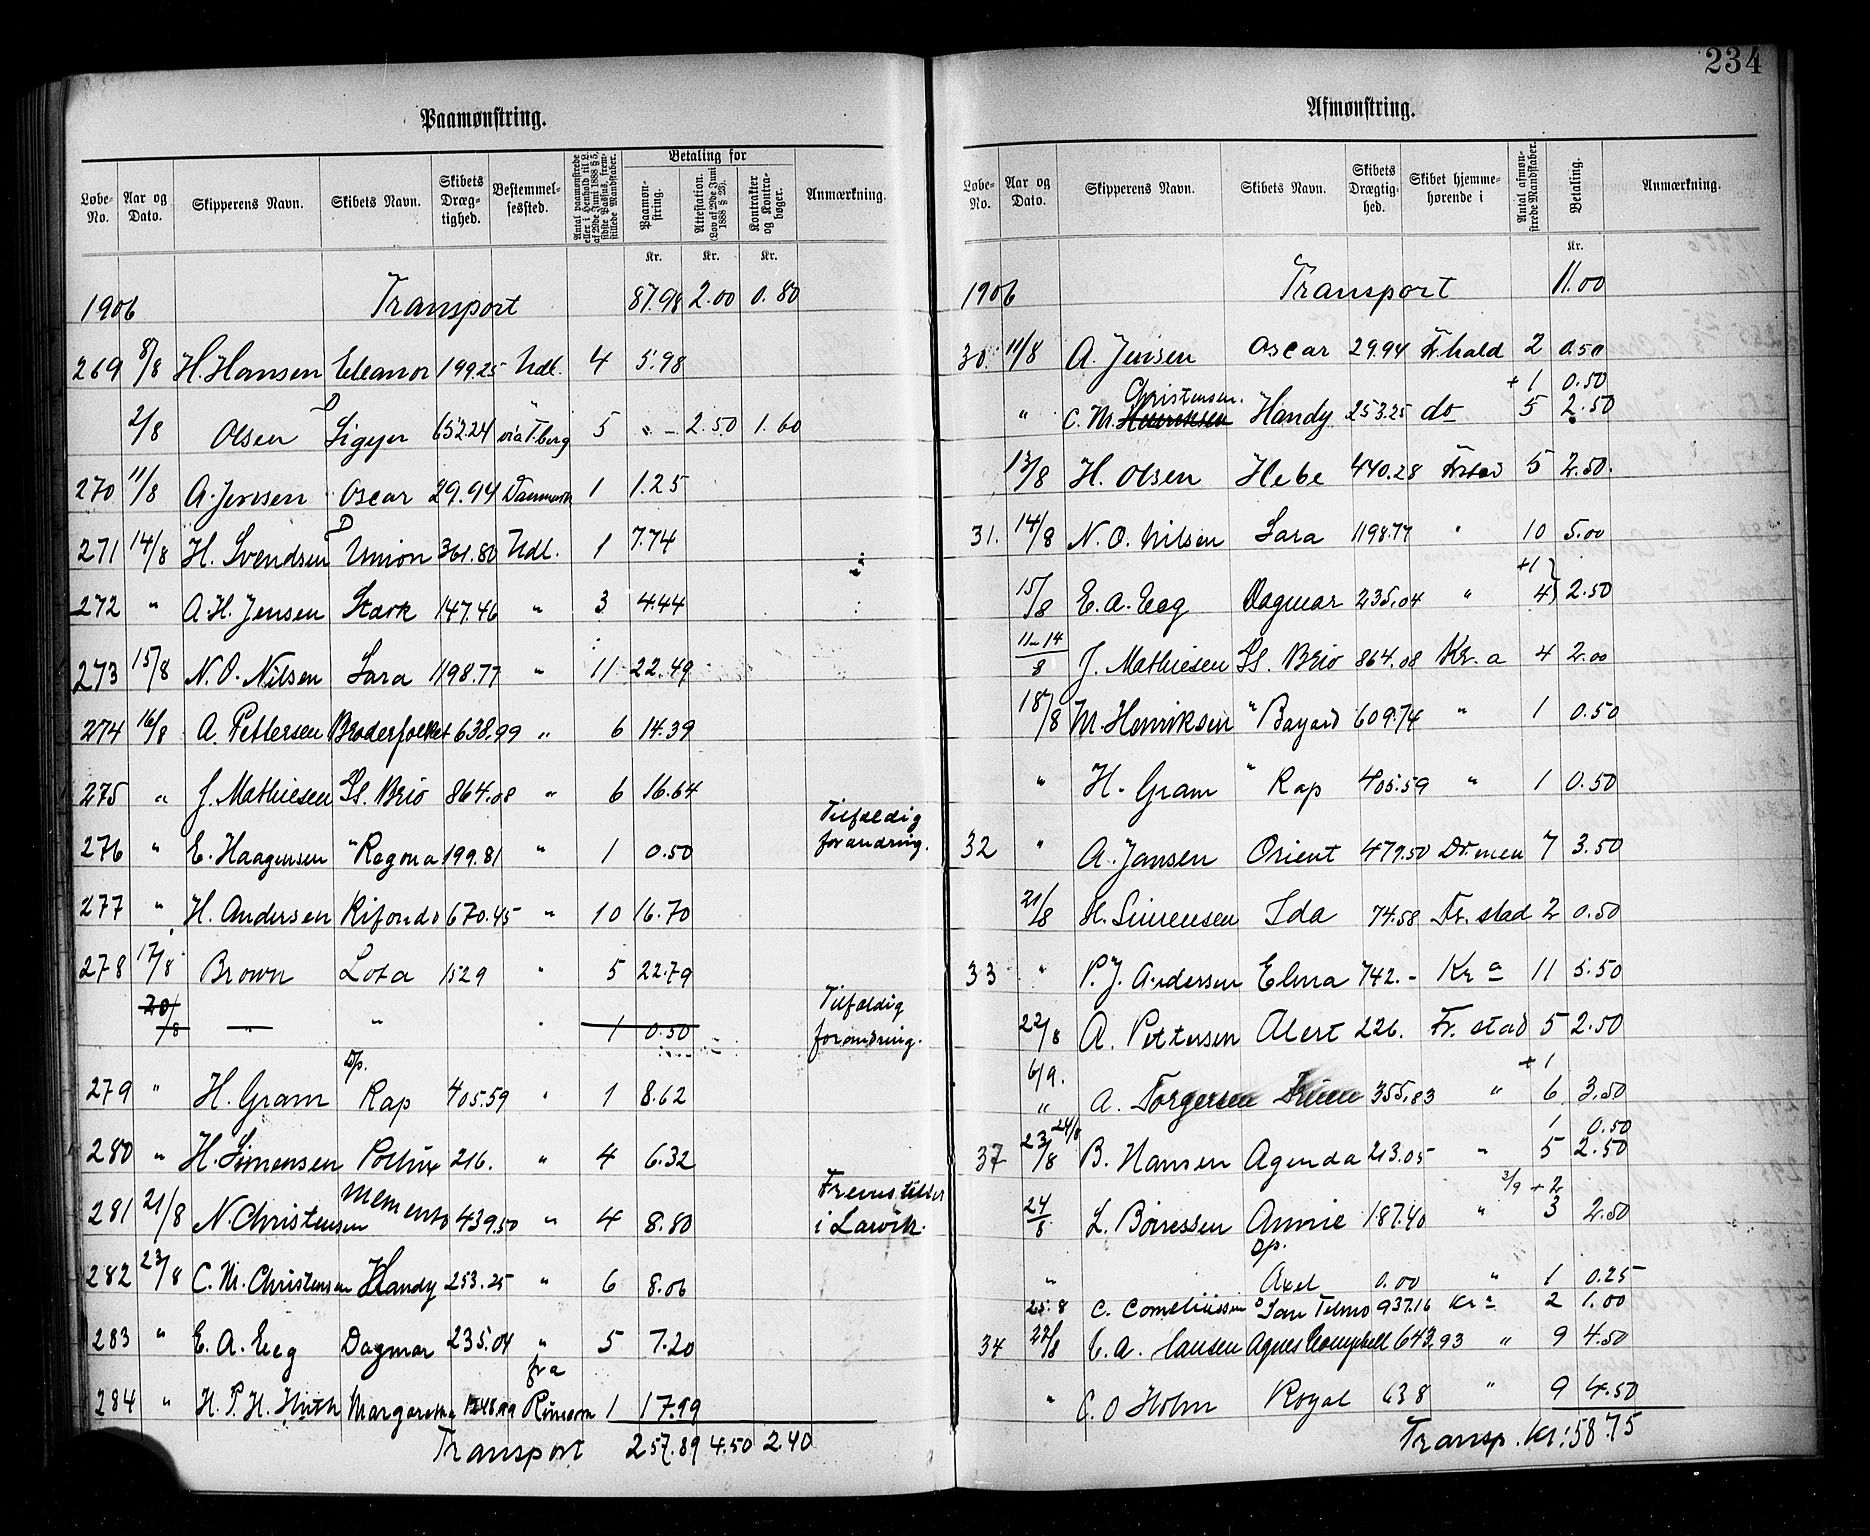 234
Paamønstring.
Løbe-No. Aar og Dato. Skipperens Navn. Skibets Navn. Skibets Dræg-tighed. Bestemmel-sessted. Antal paamønstrede eller i Henhold til L. af 29de Juni 1888 § 5, sidste Passus, frem-stillede Mandskaber. Betaling for Paamøn-string. Attestation. (Lov af 29de Juni 1888 § 23). Kontrakter og Kontra-bøger. Anmærkning.
Kr. Kr. Kr.
1906 Transport 87.98 2.00 0.80
269 8/8 H. Hansen Eleanor 199.25 Udl. 4 5.98
2/8 Olsen D Sigyn 652.24 via T.berg 5 " - 2.50 1.60
270 11/8 A. Jensen Oscar 29.94 Danmark 1 1.25
271 14/8 H. Svendsen D Union 361.80 Udl. 1 7.74
272 " A. H. Jensen Stærk 147.46 " 3 4.44
273 15/8 N. O. Nilsen Sara 1198.77 " 11 22.49
274 16/8 A. Pettersen Broderfolket 638.99 " 6 14.39
275 " J. Mathiesen Ss. Brio 864.08 " 6 16.64
276 " E. Haagensen " Ragna 199.81 " 1 0.50 Tilfældig forandring.
277 " H. Andersen Rifondo 670.45 " 10 16.70
278 17/8 Brown Lota 1529 " 5 22.79
20/8 " " " 1 0.50 Tilfældig forandring.
279 " H. Gram D/p. Rap 405.59 " 1 8.62
280 " H. Simensen Pollux 216. " 4 6.32
281 21/8 N. Christensen Memento 439.50 " 4 8.80 Fremstillet i Larvik.
282 23/8 C. M. Christensen Handy 253.25 " 6 8.06
283 " E. A. Eeg Dagmar 235.04 " 5 7.20
284 " H. P. H. Huth Margaretha fra 1 17.99
Transport 257.89 4.50 2.40
Afmønstring.
Løbe-No. Aar og Dato. Skipperens Navn. Skibets Navn. Skibets Drægtig-hed. Skibet hjemme-hørende i Antal afmøn-strede Mandskaber. Betaling. Anmærkning.
Kr.
1906 Transport 11.00
30. 11/8 A. Jensen Oscar 29.94 Fr.hald 2 0.50
+ 1 0.50
" C. M. Henriksen Christensen. Handy 253.25 do 5 2.50
13/8 H. Olsen Hebe 440.28 Frstad 5 2.50.
31. 14/8 N. O. Nilsen Sara 1198.77 " 10 5.00
+1
15/8 E. A. Eeg Dagmar 235.04 " 4 2.50
11-14/8 J. Mathiesen Ss. Brio 864.08 Kr. a 4 2.00
18/8 M. Henriksen " Bayard 609.74 " 1 0.50
" H. Gram " Rap 405.59 " 1 0.50
32 " A. Jansen Orient 479.50 Dr.men 7 3.50
21/8 H. Simensen Ida 74.58 Fr. stad 2 0.50
33 " P. J. Andersen Elma 742.- Kr a 11 5.50
22/8 A. Pettersen Alert 226. Fr. stad 5 2.50
+ 1
6/9. " A. Torgersen 355.83 " 6 3.50
24/8 1 0.50
37 23/8 B. Hansen Agenda 213.05 " 5 2.50
3/9 + 2
24/8 L. Børressen Annie 187.40 " 3 2.50
" Dp. Axel 0.00 " 1 0.25
25.8 C. Corneliussen San Telmo 937.16 Kr a 2 1.00
34 27/8 C. A. Hansen Agnes Campbell 643.93 " 9 4.50
" C. O Holm Royal 638 " 9 4.50
Transp. Kr: 58.75